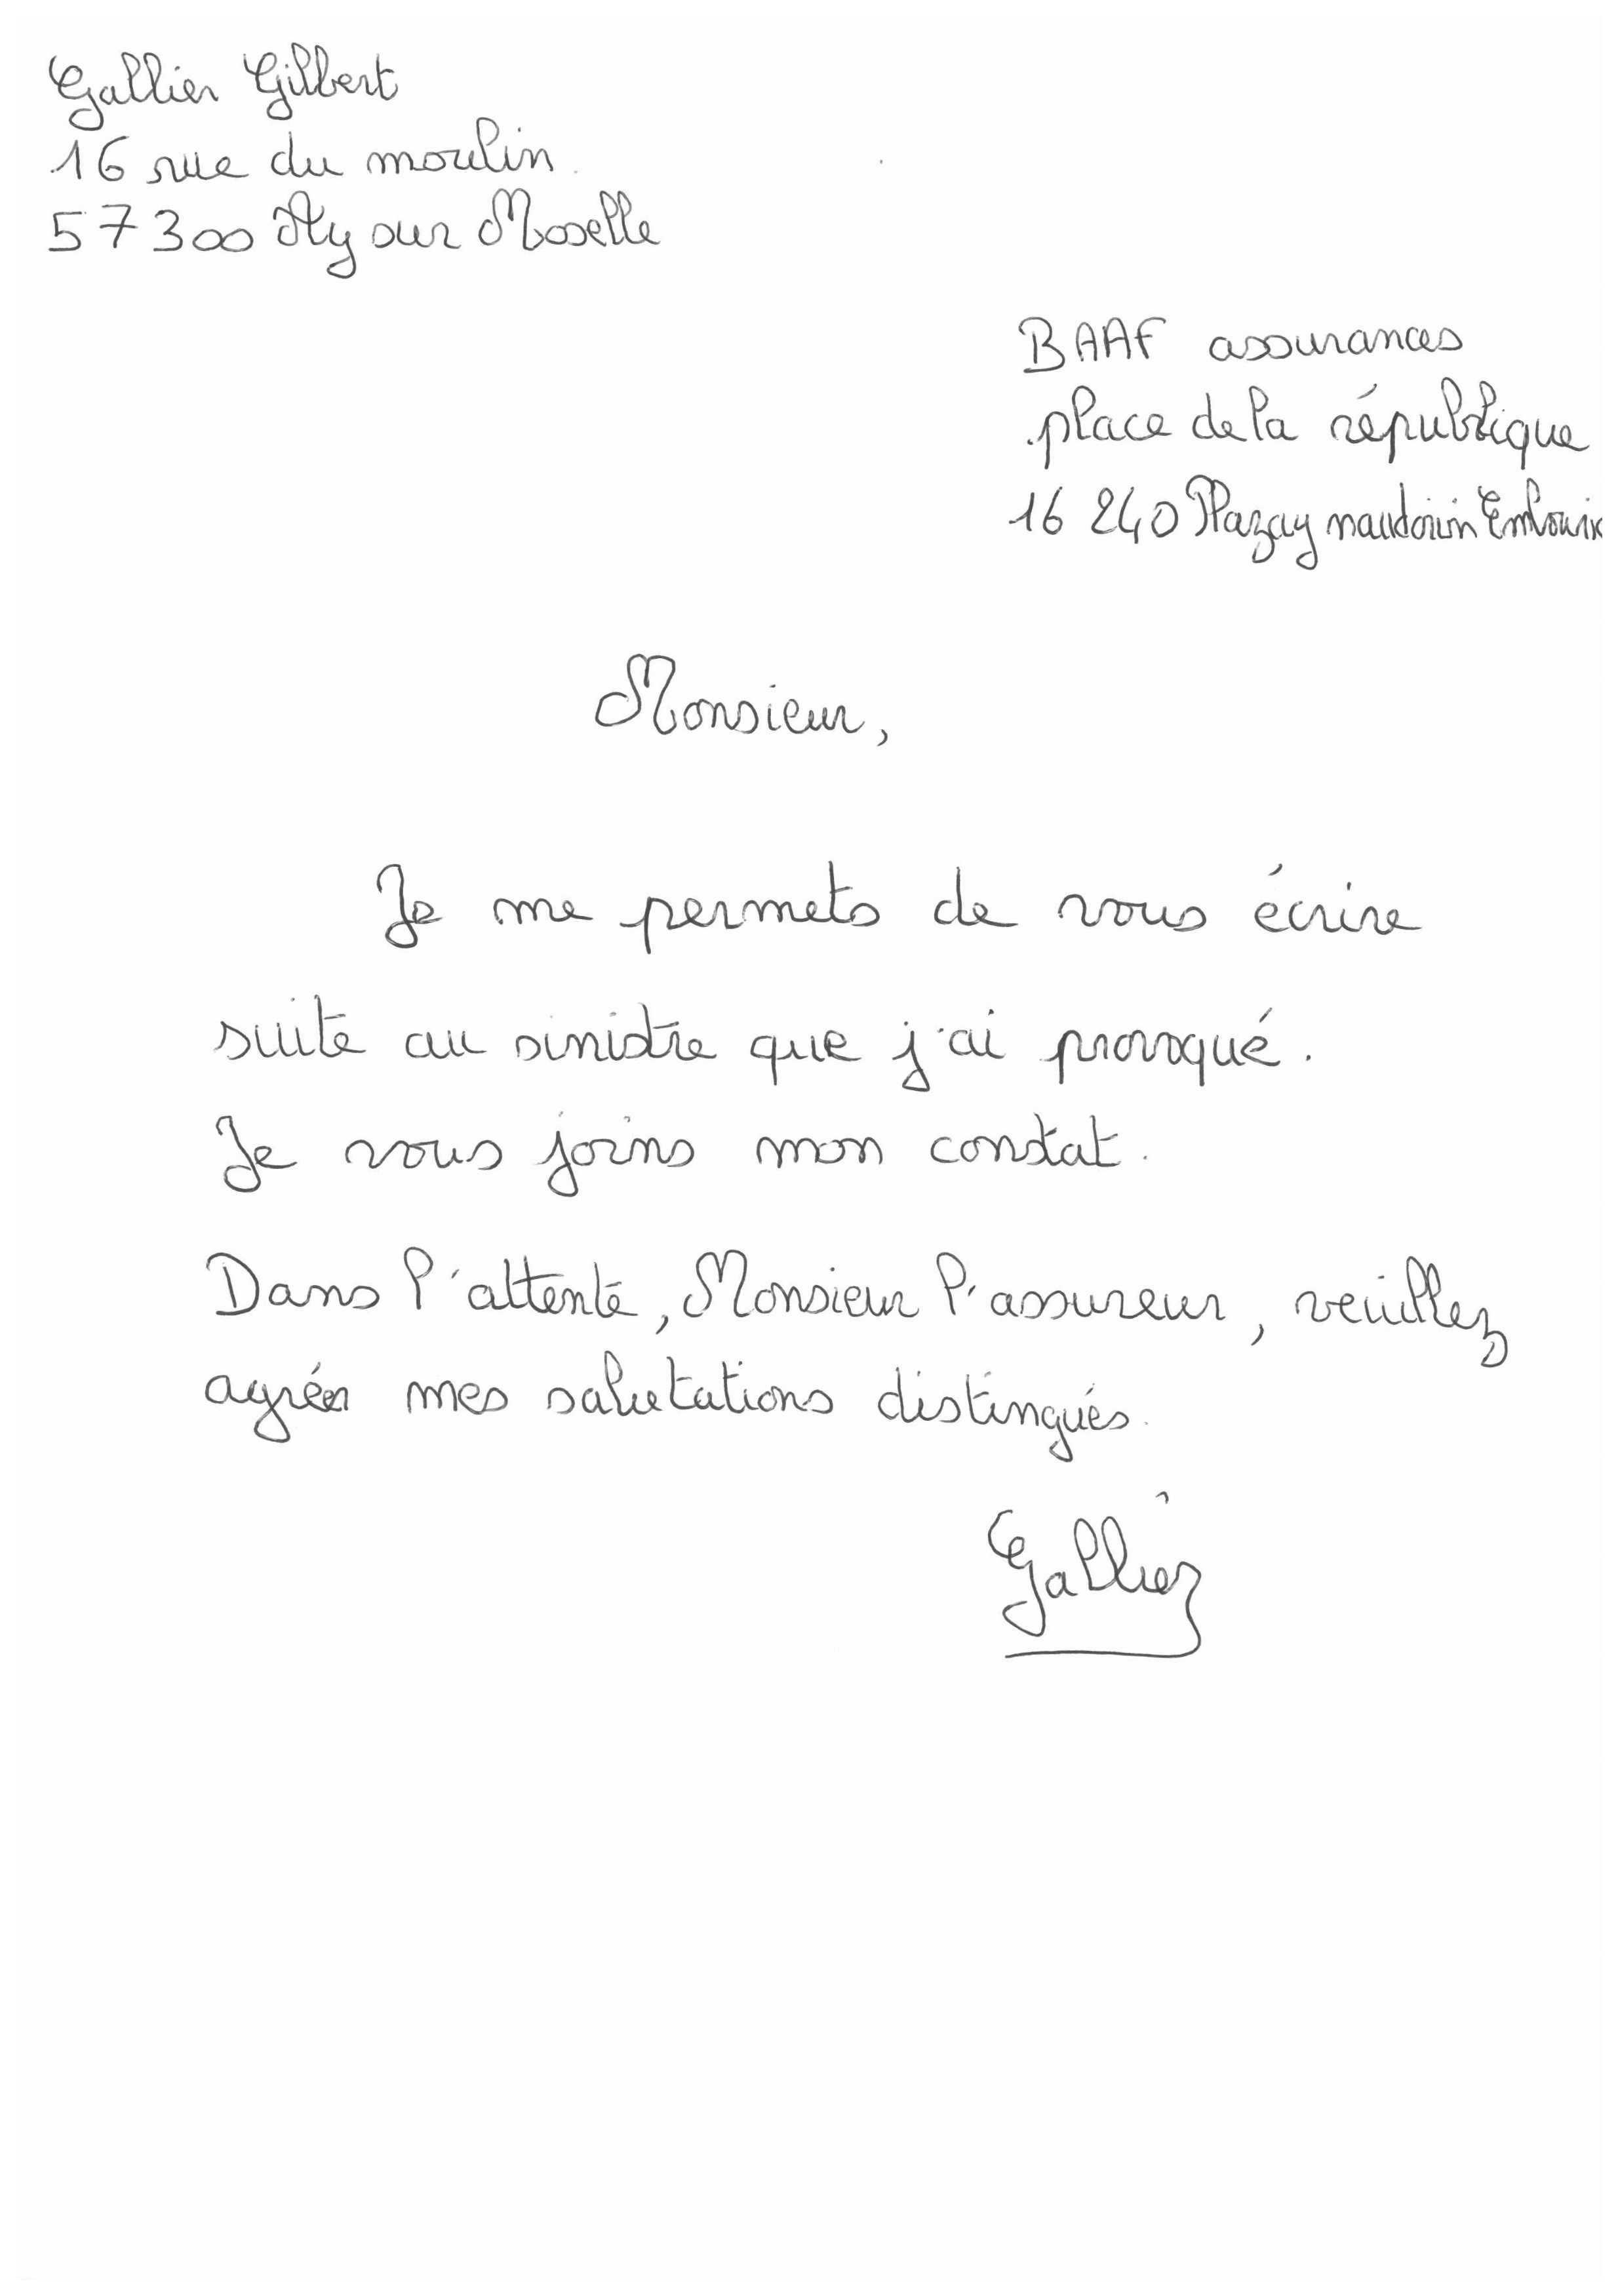 Gallier Gilbert
16 rue du moulin
57300 Ay sur Moselle
BAAF assurances
place de la république
16 240
Monsieur,
Je me permets de vous écrire
suite au sinistre que j'ai provoqué.
Je vous joins mon constat.
Dans l'attente, Monsieur l'assureur, veuillez
agréer mes salutations distingués.
Gallier